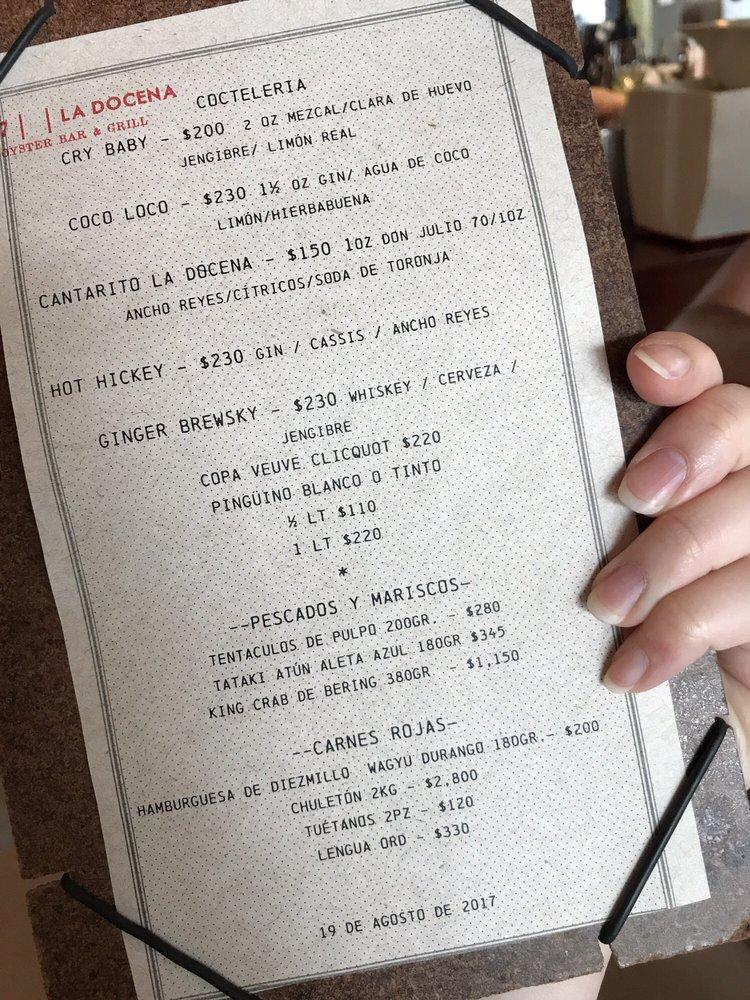 7 | | LA DOCENA
OYSTER BAR & GRILL
COCTELERIA
CRY BABY – $200 2 OZ MEZCAL/CLARA DE HUEVO
JENGIBRE/ LIMÓN REAL
COCO LOCO – $230 1½ OZ GIN/ AGUA DE COCO
LIMÓN/HIERBABUENA
CANTARITO LA DOCENA – $150 1OZ DON JULIO 70/1OZ
ANCHO REYES/CÍTRICOS/SODA DE TORONJA
HOT HICKEY – $230 GIN / CASSIS / ANCHO REYES
GINGER BREWSKY – $230 WHISKEY / CERVEZA /
JENGIBRE
COPA VEUVE CLICQUOT $220
PINGÜINO BLANCO O TINTO
½ LT $110
1 LT $220
*
––PESCADOS Y MARISCOS–
TENTACULOS DE PULPO 200GR. – $280
TATAKI ATÚN ALETA AZUL 180GR $345
KING CRAB DE BERING 380GR – $1,150
––CARNES ROJAS–
HAMBURGUESA DE DIEZMILLO WAGYU DURANGO 180GR.– $200
CHULETÓN 2KG – $2,800
TUÉTANOS 2PZ – $120
LENGUA ORD – $330
19 DE AGOSTO DE 2017